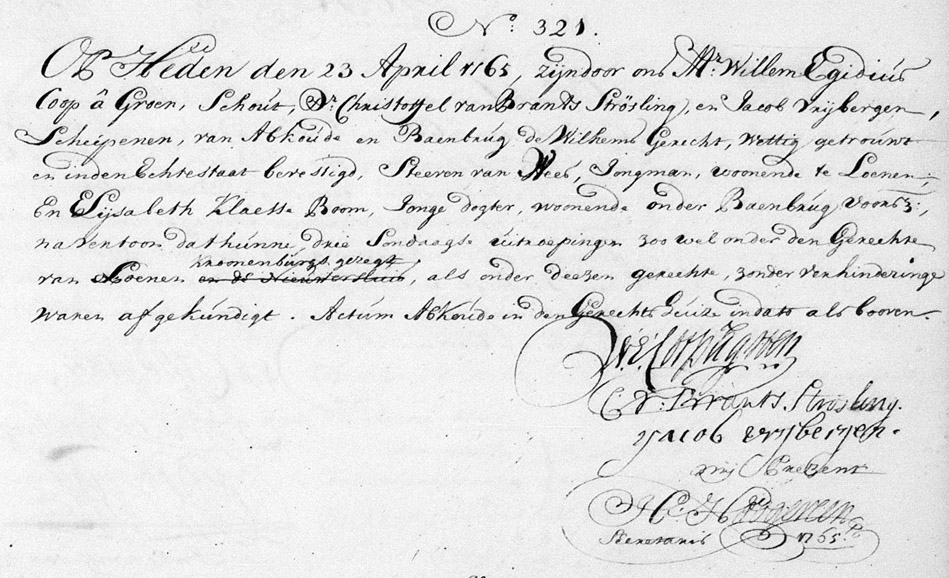 No. 321.
Op Heden den 23 April 1765, zijn door ons Mr. Willem Egidius
Coop â Groen, Schout, Dr. Christoffel van Brants Strösling, en Jacob Vrijbergen,
Scheepenen, van Abkoude en Baenbrug de Wilhems Gerecht, Wettig getrouwt
en in den Echte staat bevestigd, Steeven van Wees, Jongman, woonende te Loenen;
En Elijsabeth Klaesse Boom, Jonge dogter, woonende onder Baenbrug voorsz:,
na vertoon dat hunne drie Sondaagse uitroepingen zoo wel onder den Gerechte
Kroonenburgs gezegt
van Loenen en de Nieuwersluis, als onder deezen gerechte, zonder verhinderinge
waren afgekúndigt. Actúm Abkoúde in den Gerechts húize in dato als booven.
W: E: Coop à groen
C. V: Brants Strosling.
Jacob vrijbergen.
mij Prezent
Secretaris
1765